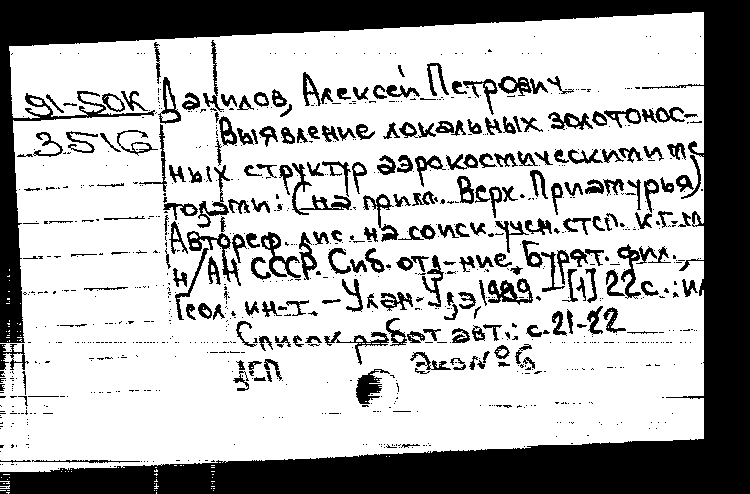 91-50К Данилов, Алексей Петрович
3516 Выявление локальных золотонос-
ных структур аэрокосмическими ме
тодами: (на прим. Верх. Приамурья)
Автореф. дис. на соиск. учен. степ. к.г.-м
н/АН СССР. Сиб. отд-ние. Бурят. фил.,
Геол. ин-т. - Улан-Удэ, 1989. - [1] 22с.: ил
Список работ авт.: с.21-22
ДСП Экз № 6